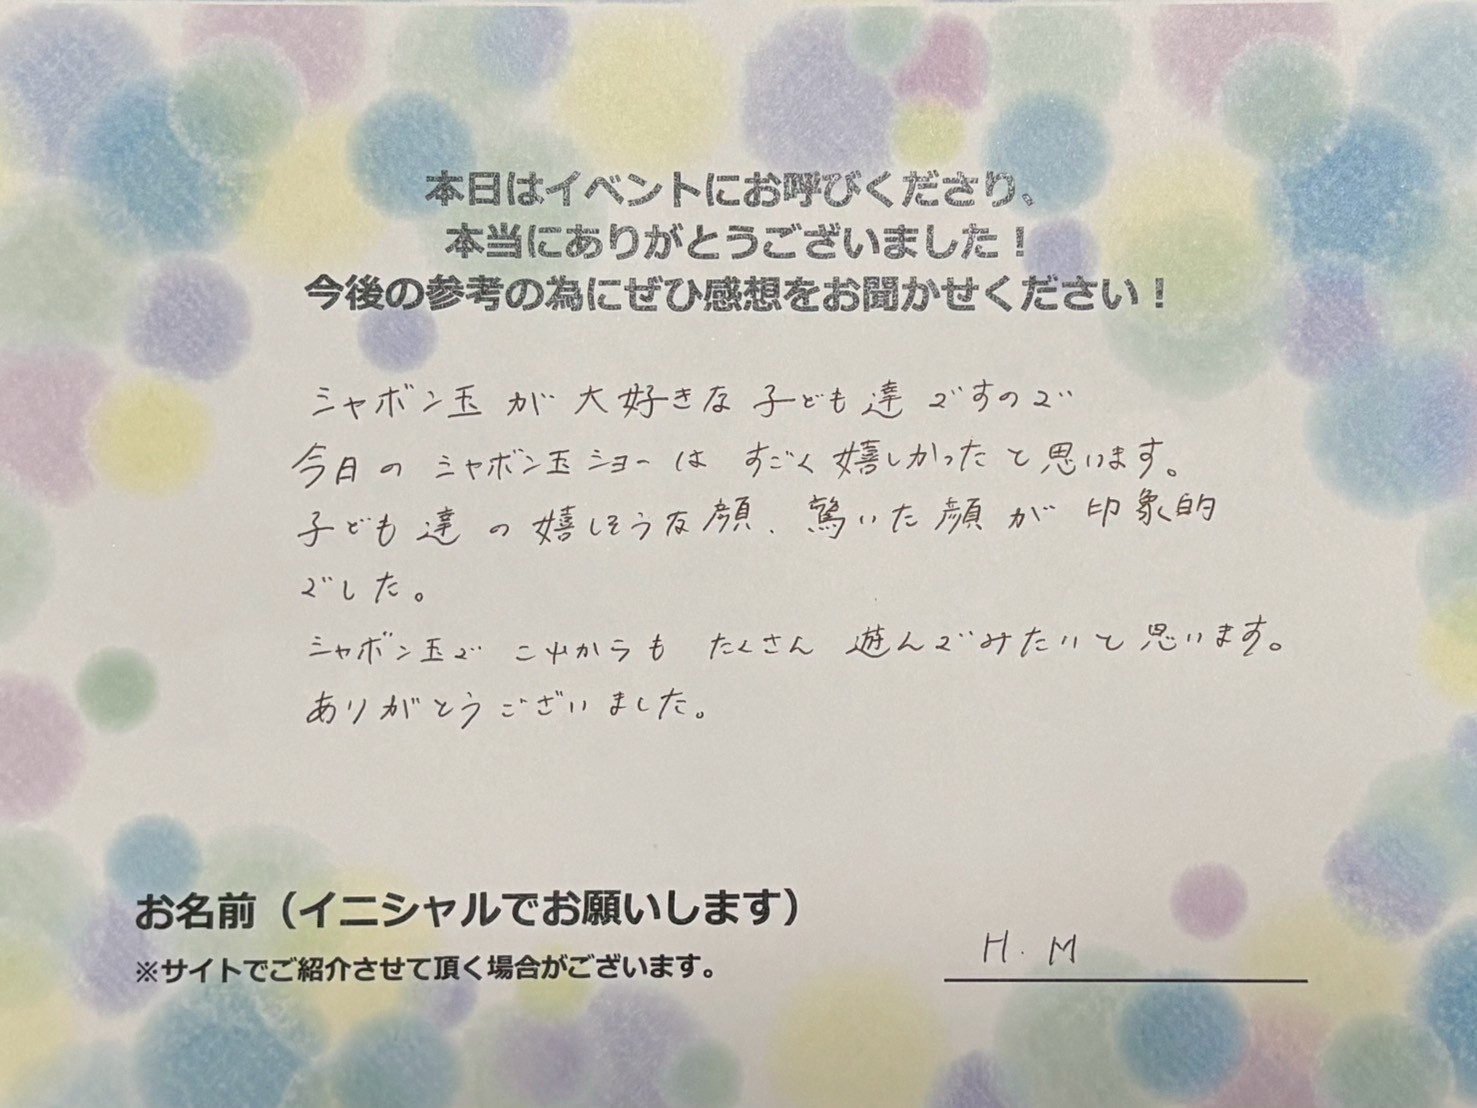 本日はイベントにお呼びくださり、
本当にありがとうございました！
今後の参考の為にぜひ感想をお聞かせください！
シャボン玉が大好きな子ども達ですので
今日のシャボン玉ショーはすごく嬉しかったと思います。
子ども達の嬉しそうな顔、驚いた顔が印象的
でした。
シャボン玉でこれからもたくさん遊んでみたいと思います。
ありがとうございました。
お名前（イニシャルでお願いします）
※サイトでご紹介させて頂く場合がございます。
H.M